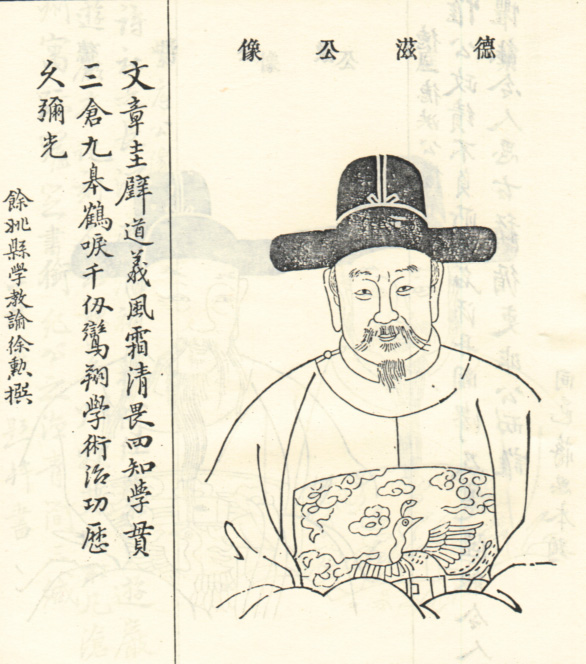 德滋公像
文章圭璧道義風霜清畏四知學貫
三倉九皋鶴唳千仭鸞翔學術治功歷
久彌光
餘姚縣學教諭徐勲撰